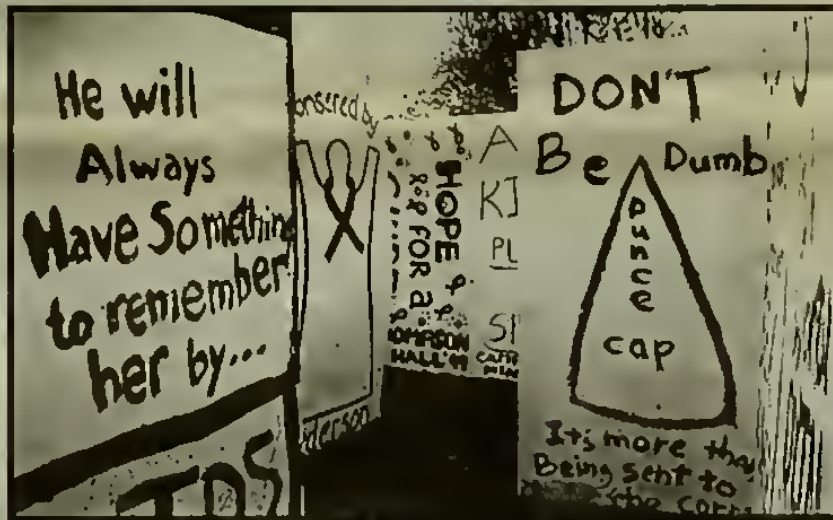 He will
Always
Have Something
to remember
her by...
IDS
onsered by
derson
HOPE
FOR a
HALL
A
KI
PL
SP
DON'T
Be Dumb
Dunce
cap
It's more tha
Being sent to
the corn